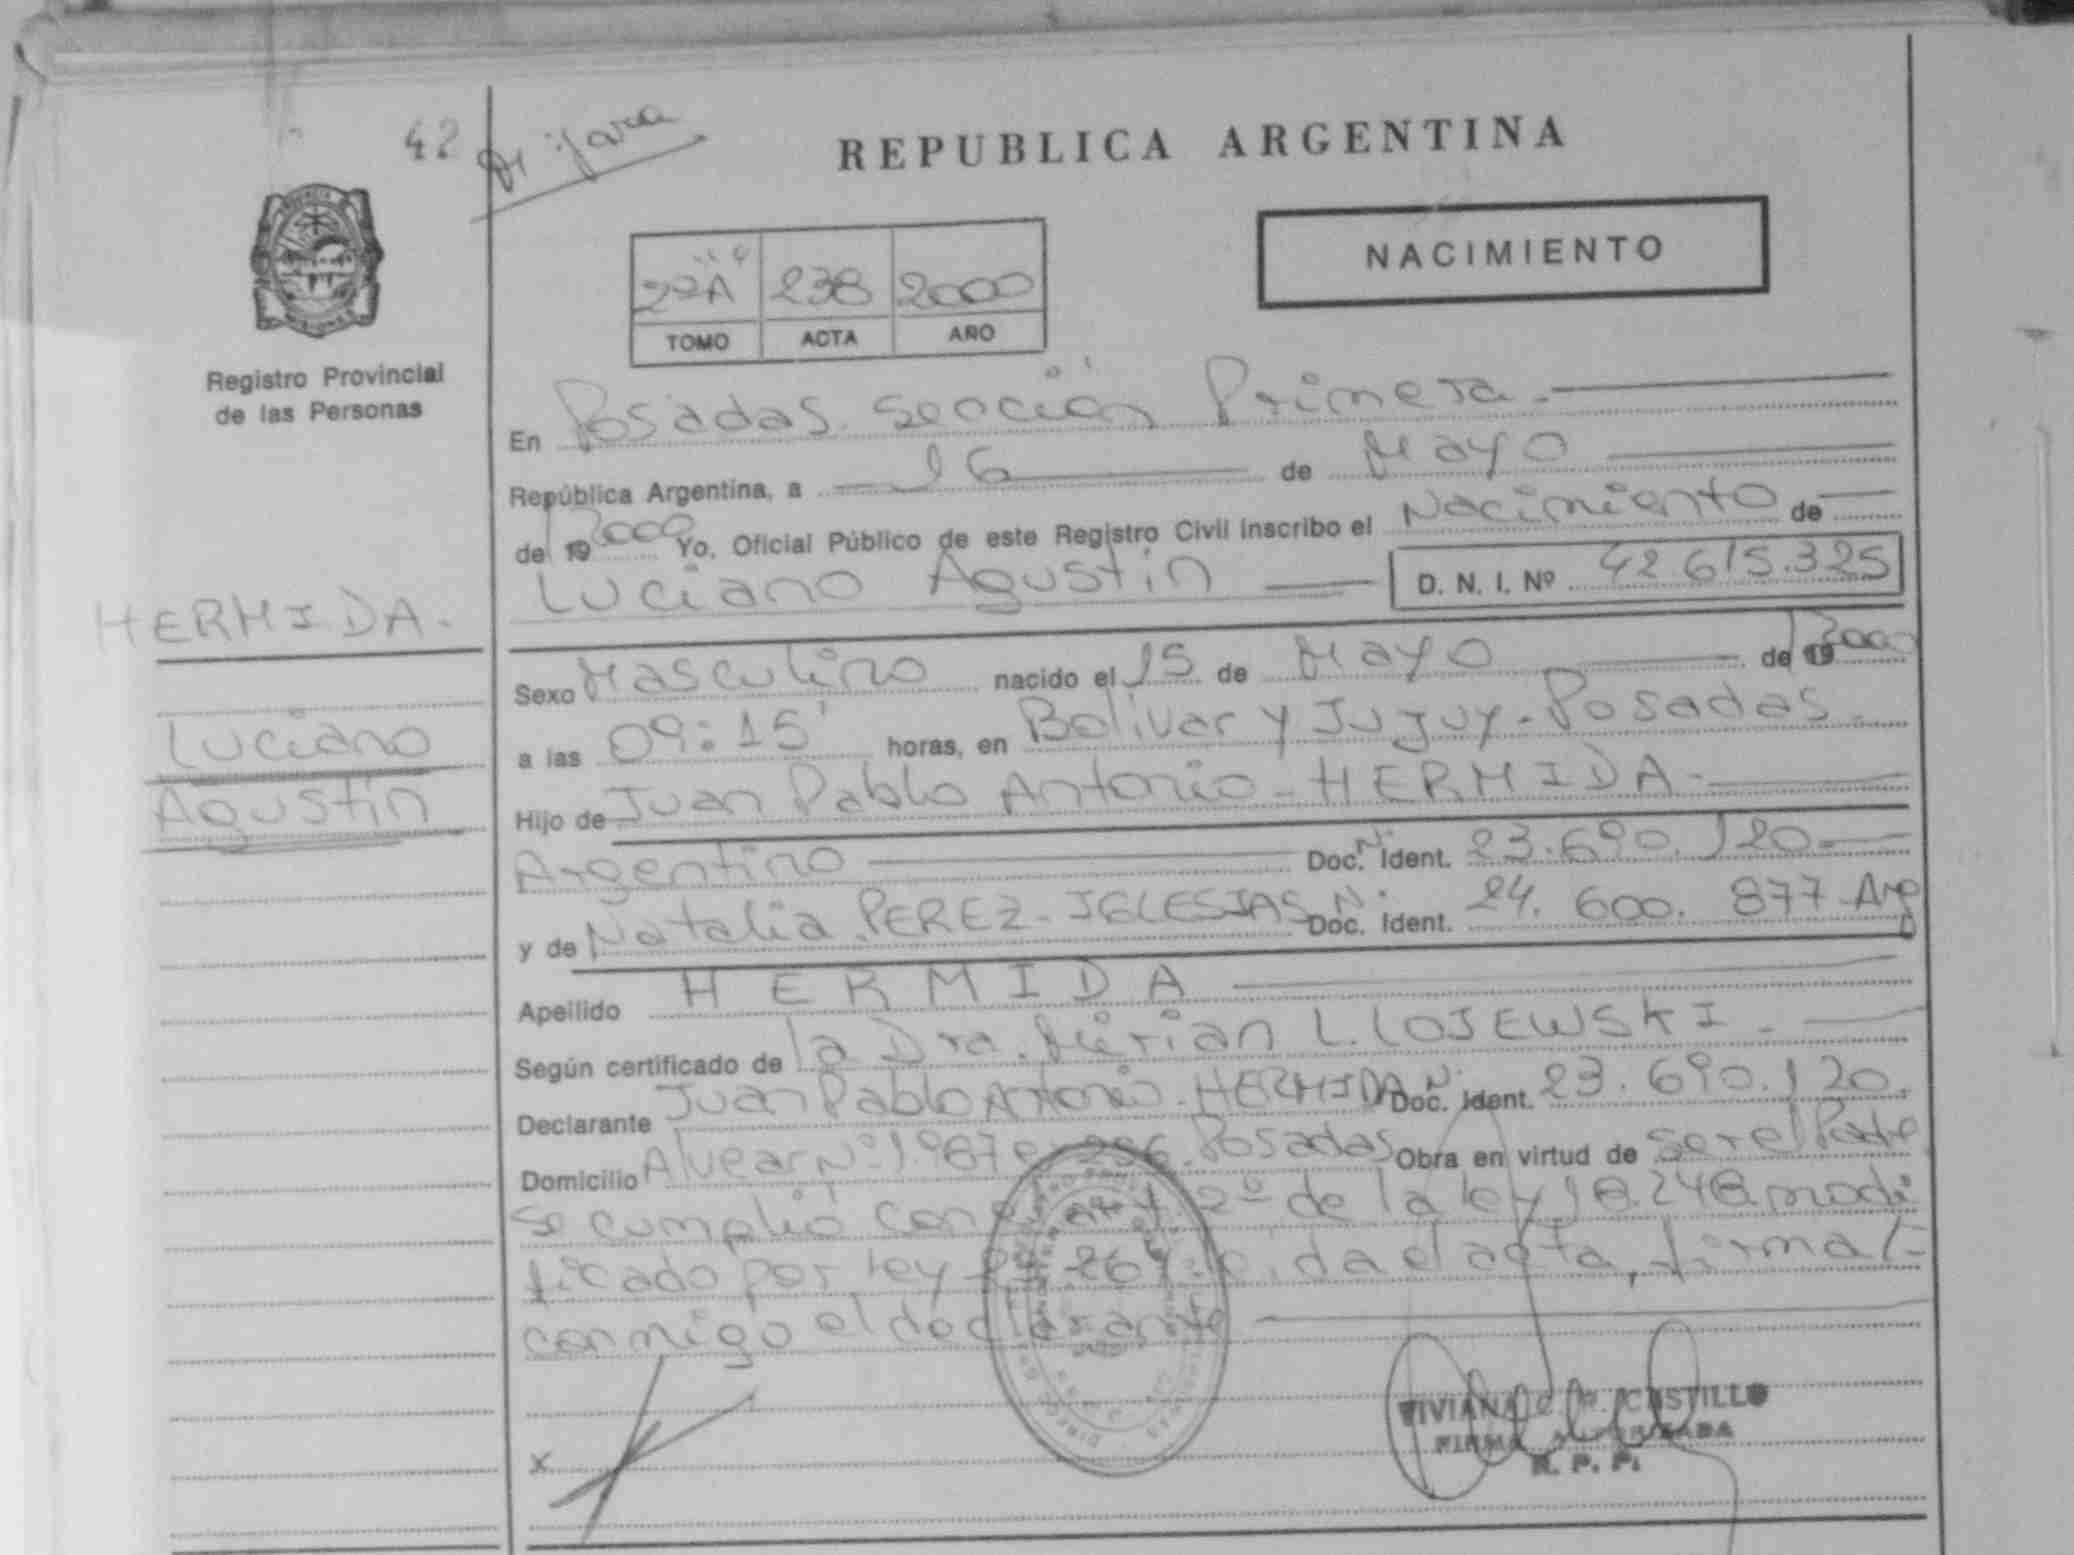 42
REPUBLICA ARGENTINA
NACIMIENTO
2ºA 238 2000
TOMO ACTA AÑO
Registro Provincial
de las Personas
En Posadas Sección Primera.
República Argentina, a 16 de Mayo
de 19 2000 Yo, Oficial Público de este Registro Civil inscribo el Nacimiento de
Luciano Agustin
D. N. I. Nº 42.615.325
HERMIDA.
Luciano
Agustin
Sexo Masculino nacido el 15 de Mayo de 19 2000
a las 09:15' horas, en Bolivar y Jujuy - Posadas
Hijo de Juan Pablo Antonio - HERMIDA -
Argentino Doc. N. Ident. 23.690.120
y de Natalia PEREZ - IGLESIAS Doc. N. Ident. 24.600.877 Arg
Apellido HERMIDA
Según certificado de la Dra. Mirian L. LOJEWSKI.
Declarante Juan Pablo Antonio - HERMIDA Doc. N. Ident. 23.690.120.
Domicilio Alvear Nº 1.987 Posadas Obra en virtud de ser el Padre
se cumplió con art. 2º de la ley 18.248 modi
ficado por ley da el acta, firma
conmigo el declarante
x
VIVIANA CASTILLO
FIRMA AUTORIZADA
R. P. P.